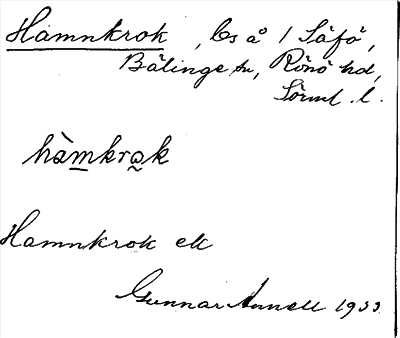 Hamnkrok, Ös å / Säfö,
Bälinge sn, Rönö hd,
Sörml. l.
hàmkrok
Hamnkrok ek
Gunnar Annell 1933